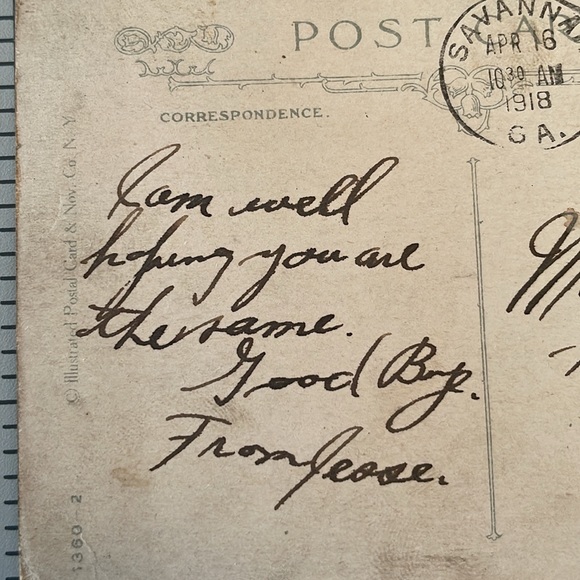 POST
SAVANNA
APR 16
10 30 AM
1918
GA.
CORRESPONDENCE.
I am well
hoping you are
the same.
Good Bye.
From Jesse.
© Illustrated Postal Card & Nov. Co. N. Y.
1360 2